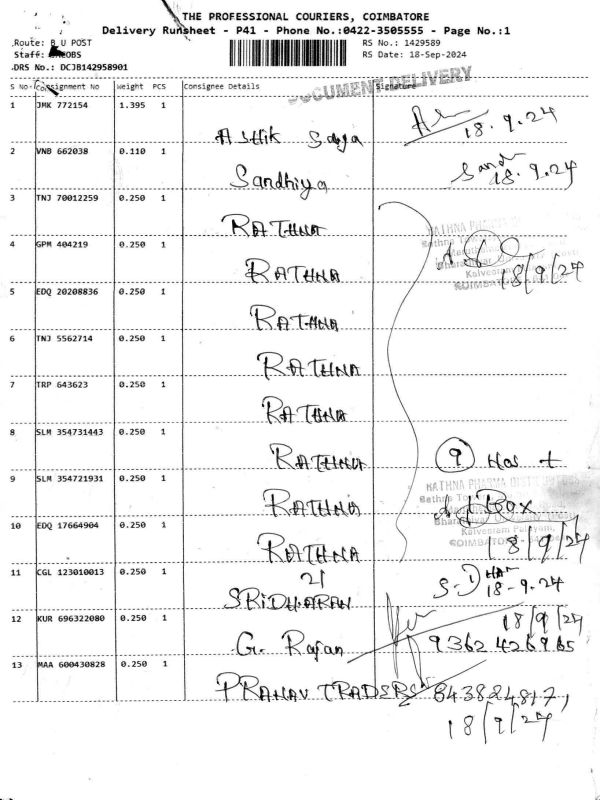 THE PROFESSIONAL COURIERS, COIMBATORE
Delivery Runsheet - P41 - Phone No.:0422-3505555 - Page No.:1
Route: B U POST
RS No.: 1429589
Staff:
RS Date: 18-Sep-2024
DRS No.: DCJB142958901
DOCUMENT DELIVERY
S No Consignment No Weight PCS Consignee Details Signature
1 JMK 772154 1.395 1
18.9.24
2 VNB 662038 0.110 1 Sandhiya
18.9.24
3 TNJ 70012259 0.250 1 RATHNA
4 GPM 404219 0.250 1 RATHNA
18/9/24
5 EDQ 20208836 0.250 1 RATHNA
6 TNJ 5562714 0.250 1 RATHNA
7 TRP 643623 0.250 1 RATHNA
8 SLM 354731443 0.250 1 RATHNA
9
9 SLM 354721931 0.250 1 RATHNA
RATHNA PHARMA
Box
10 EDQ 17664904 0.250 1 RATHNA
18/9/24
11 CGL 123010013 0.250 1 SRIDHARAN
18-9.24
12 KUR 696322080 0.250 1 G. Rajan
18/9/24
9362426965
13 MAA 600430828 0.250 1 PRANAV TRADERS
18/9/24